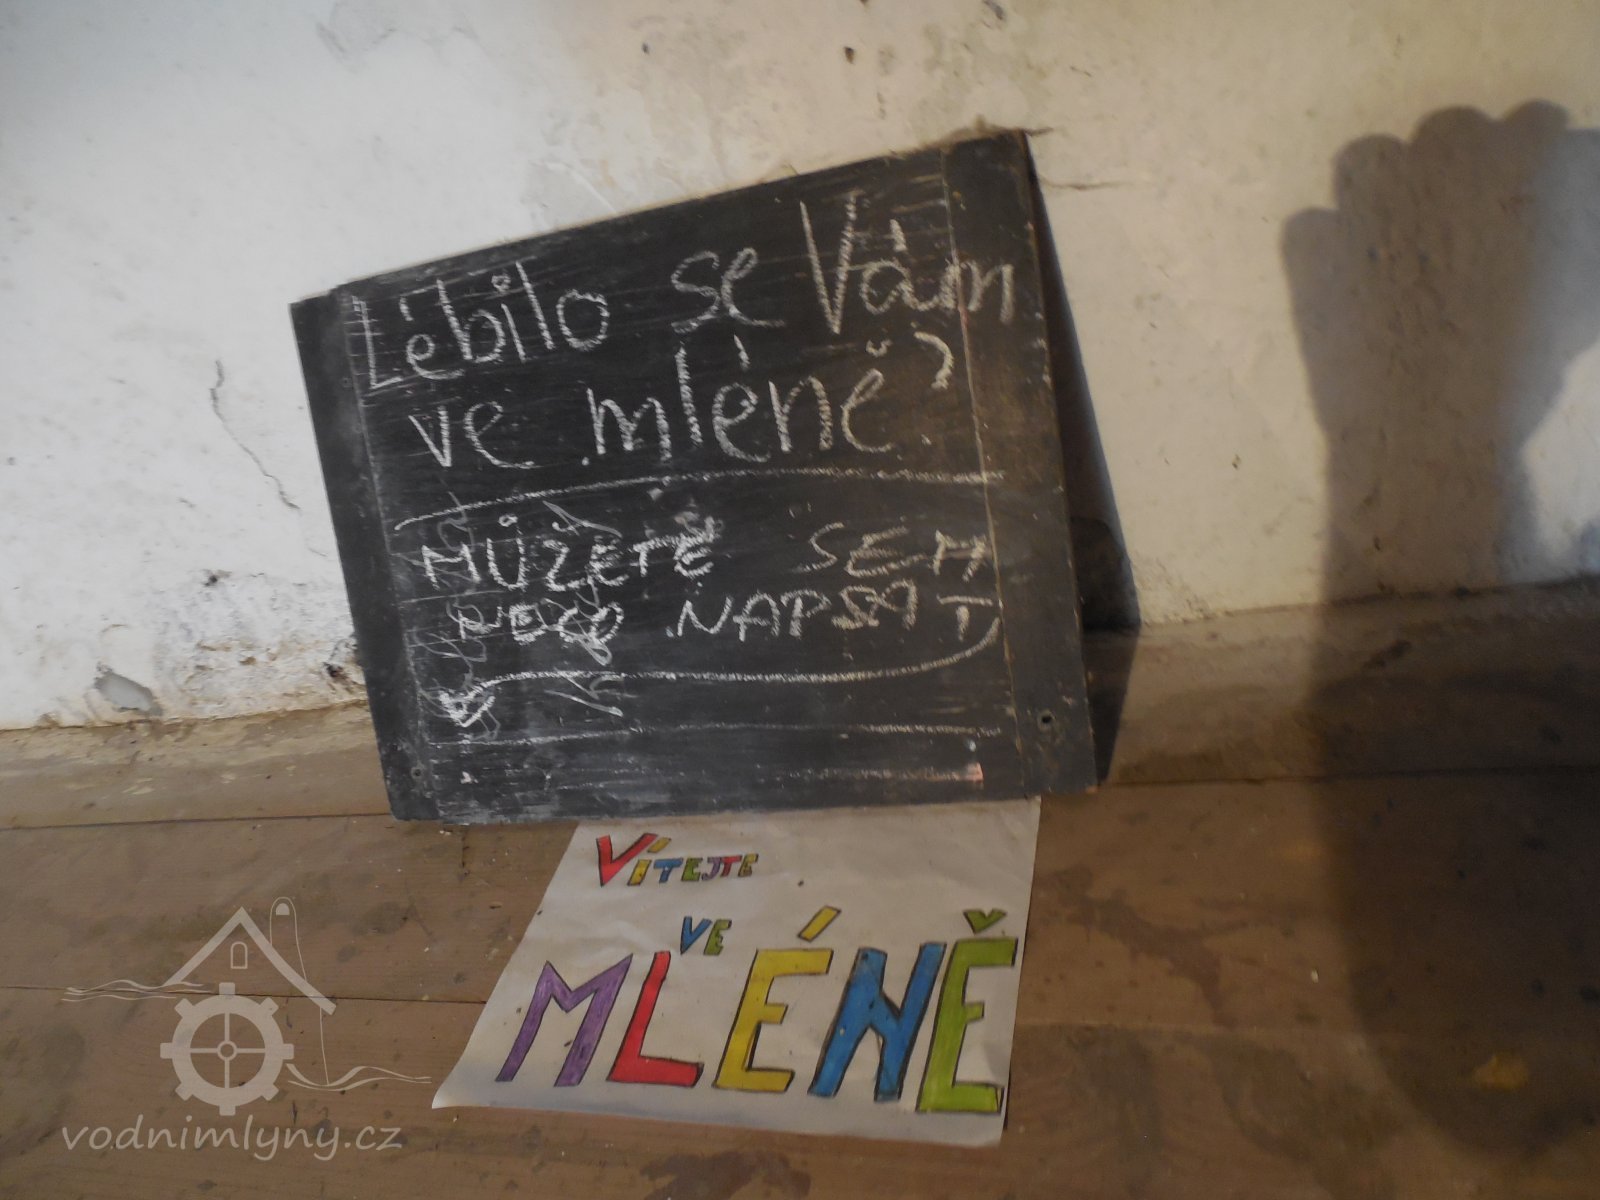 Lébilo se Vám
ve mléně?
MŮŽETE SEM
NĚCO NAPSAT
VÍTEJTE
VE
MLÉNĚ
vodnimlyny.cz